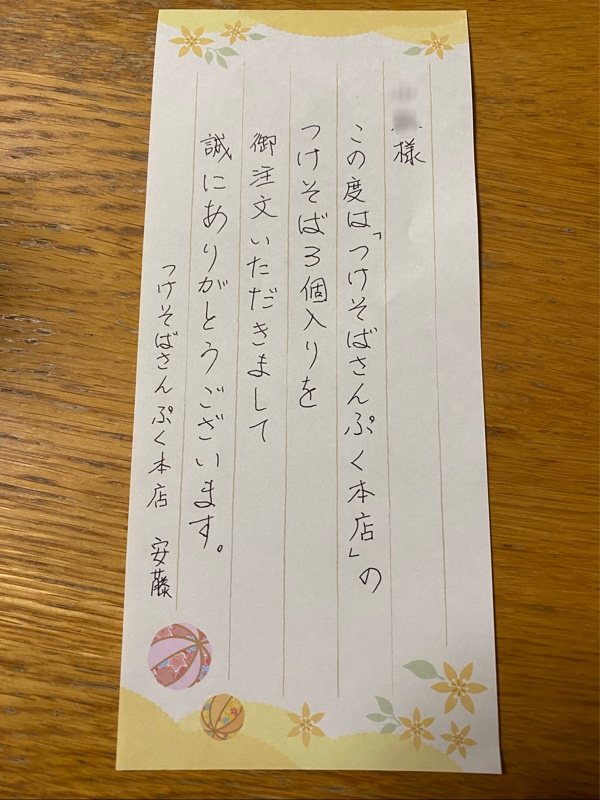 様
この度は「つけそばさんぷく本店」の
つけそば3個入りを
御注文いただきまして
誠にありがとうございます。
つけそばさんぷく本店 安藤